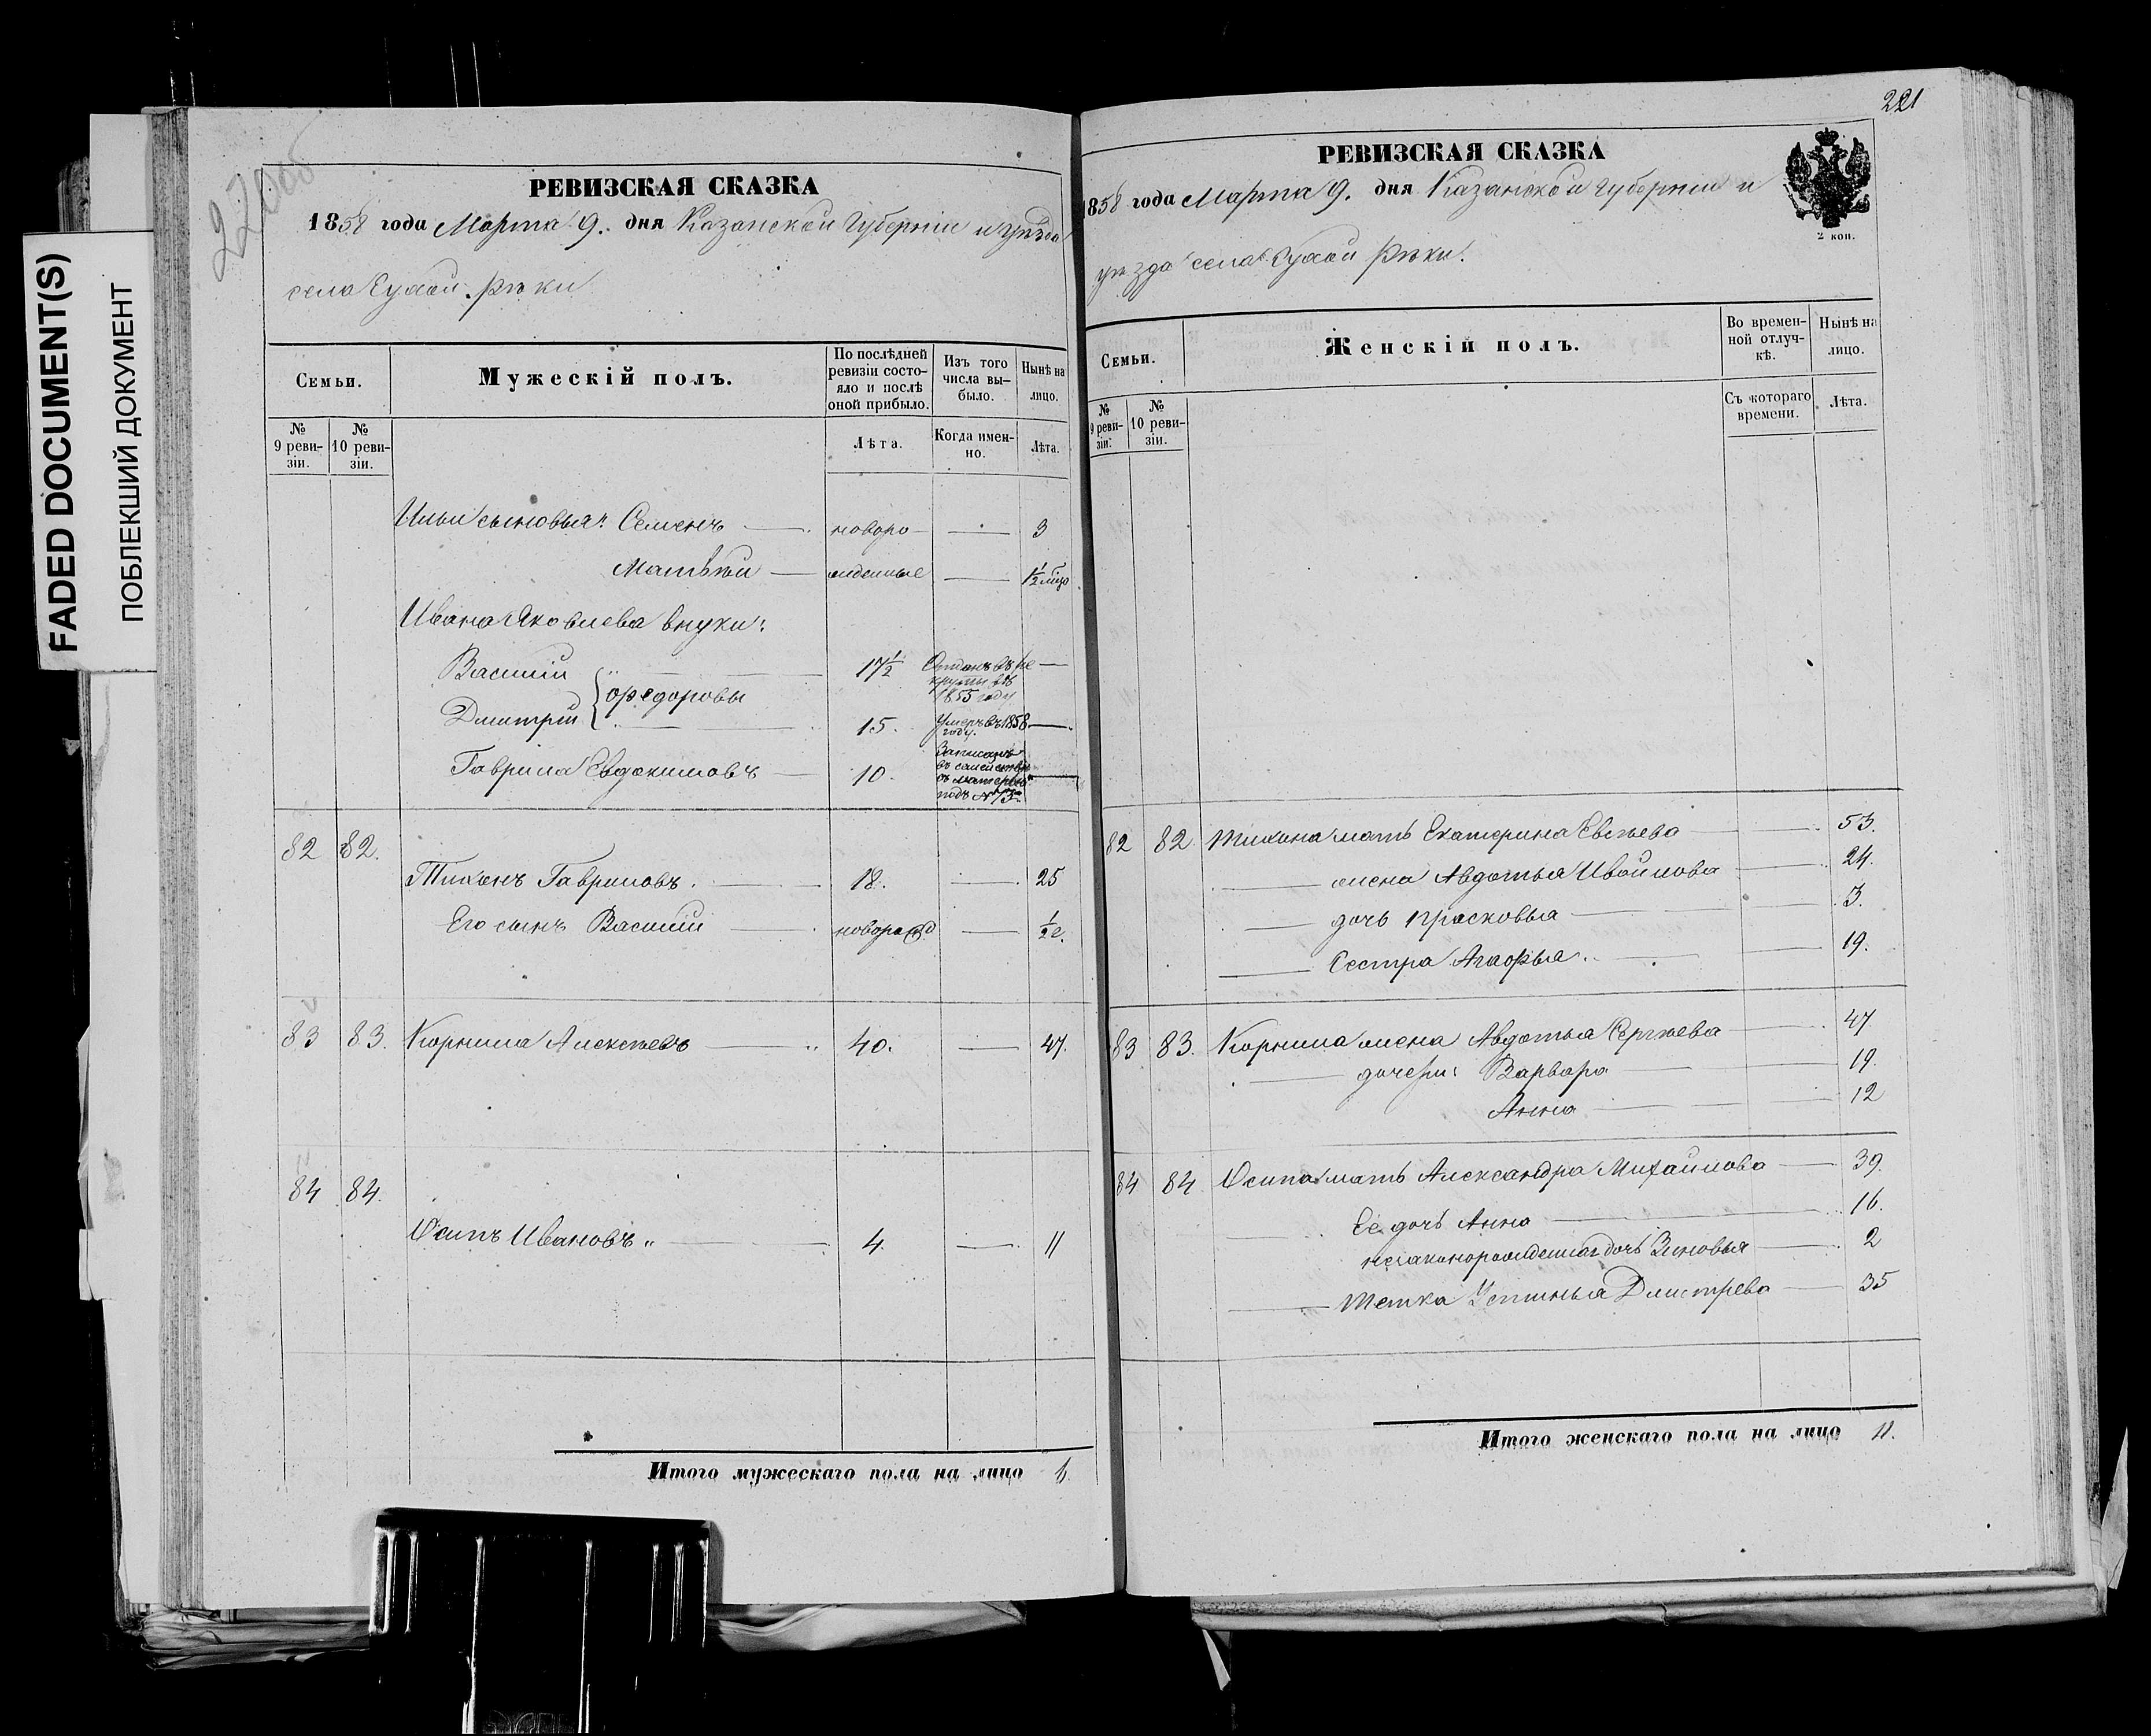 FADED DOCUMENT(S)
ПОБЛЕКШИЙ ДОКУМЕНТ
220об
РЕВИЗСКАЯ СКАЗКА
1858 года Марта 9. дня Казанской Губерніи и уѣзда
села Сухой рѣки
Семьи.
Мужескій полъ.
По послѣдней ревизіи состояло и послѣ оной прибыло.
Изъ того числа выбыло.
Нынѣ на лицо.
№ 9 ревизіи.
№ 10 ревизіи.
Лѣта.
Когда именно.
Лѣта.
Ильи сыновья: Семенъ — новоро- — 3
Матвѣй — жденные — 1½
Ивана Яковлева внуки:
Василій 17½ Отданъ въ рекруты въ 1855 году —
Ѳедоровы
Дмитрій 15. Умеръ въ 1858 году. —
Гаврила Евдокимовъ — 10. Записанъ въ семействѣ подъ № 73 —
82 82.
Тихонъ Гавриловъ. — 18. — 25
Его сынъ Василій — новорожд — ½ г.
83 83. Корнила Алексѣевъ — 40. — 47.
84 84.
Осипъ Ивановъ — 4. — 11
Итого мужескаго пола на лицо 6
221
РЕВИЗСКАЯ СКАЗКА
1858 года Марта 9. дня Казанской губерніи и
2 коп.
уѣзда села Сухой рѣки.
Семьи.
Женскій полъ.
Во временной отлучкѣ.
Нынѣ на лицо.
№ 9 ревизіи.
№ 10 ревизіи.
Съ котораго времени.
Лѣта.
82 82. Тихона мать Екатерина Евсѣева — 53.
— жена Авдотья Ивойлова — 24.
— дочь Прасковья — 3.
— Сестра Агафья. — 19.
83 83. Корнила жена Авдотья Сергѣева — 47
— дочери: Варвара — 19.
Анна — 12
84 84 Осипа мать Александра Михайлова — 39.
Ее дочь Анна — 16.
незаконорожденная дочь Зиновья — 2
— тетка Устинья Дмитрева — 35
Итого женскаго пола на лицо 11.